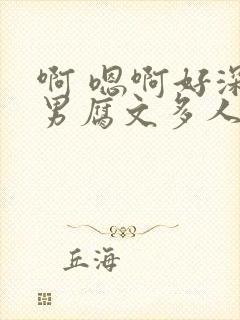 啊 嗯啊好深
男腐文多人
丘海